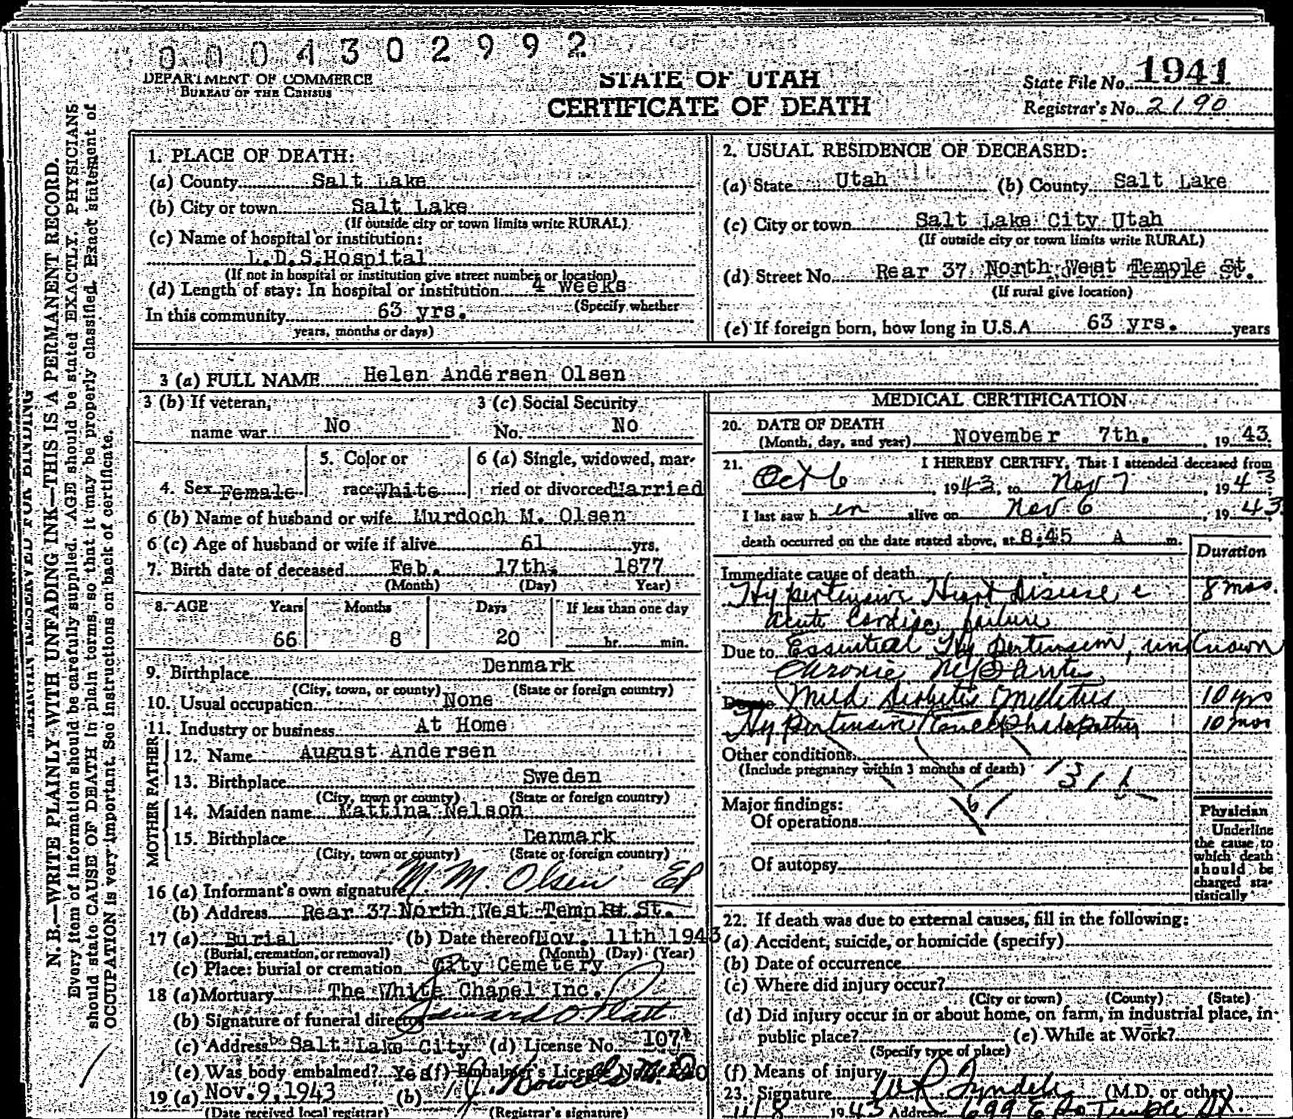 0004302992
DEPARTMENT OF COMMERCE
BUREAU OF THE CENSUS
STATE OF UTAH
CERTIFICATE OF DEATH
State File No. 1941
Registrar's No. 2190
N.B.—WRITE PLAINLY WITH UNFADING INK—THIS IS A PERMANENT RECORD.
Every item of information should be carefully supplied. AGE should be stated EXACTLY. PHYSICIANS
should state CAUSE OF DEATH in plain terms, so that it may be properly classified. Exact statement of
OCCUPATION is very important. See instructions on back of certificate.
1. PLACE OF DEATH:
(a) County Salt Lake
(b) City or town Salt Lake
(If outside city or town limits write RURAL)
(c) Name of hospital or institution:
L.D.S.Hospital
(If not in hospital or institution give street number or location)
(d) Length of stay: In hospital or institution 4 weeks
(Specify whether
In this community 63 yrs.
years, months or days)
2. USUAL RESIDENCE OF DECEASED:
(a) State Utah (b) County Salt Lake
(c) City or town Salt Lake City Utah
(If outside city or town limits write RURAL)
(d) Street No. Rear 37 North West Temple St.
(If rural give location)
(e) If foreign born, how long in U.S.A 63 yrs. years
3 (a) FULL NAME Helen Andersen Olsen
3 (b) If veteran, 3 (c) Social Security
name war No No. No
4. Sex Female 5. Color or race White 6 (a) Single, widowed, married or divorced Married
6 (b) Name of husband or wife Murdoch M. Olsen
6 (c) Age of husband or wife if alive 61 yrs.
7. Birth date of deceased Feb. 17th. 1877
(Month) (Day) Year)
8. AGE Years Months Days If less than one day
66 8 20 hr. min.
9. Birthplace Denmark
(City, town, or county) (State or foreign country)
10. Usual occupation None
11. Industry or business At Home
FATHER
12. Name August Andersen
13. Birthplace Sweden
(City, town or county) (State or foreign country)
MOTHER
14. Maiden name Kattina Nelson
15. Birthplace Denmark
(City, town or county) (State or foreign country)
16 (a) Informant's own signature M. M. Olsen
(b) Address Rear 37 North West Temple St.
17 (a) Burial (b) Date thereof Nov. 11th 1943
(Burial, cremation, or removal) (Month) (Day) (Year)
(c) Place: burial or cremation City Cemetery
18 (a) Mortuary The White Chapel Inc.
(b) Signature of funeral director
(c) Address Salt Lake City (d) License No. 107
(e) Was body embalmed? Yes (f) Embalmer's License No.
19 (a) Nov.9,1943 (b)
(Date received local registrar) (Registrar's signature)
MEDICAL CERTIFICATION
20. DATE OF DEATH
(Month, day, and year) November 7th. 1943
21. I HEREBY CERTIFY, That I attended deceased from
Oct 6, 1943, to Nov 7, 1943
I last saw h er alive on Nov 6, 1943
death occurred on the date stated above, at 8:45 A m.
Duration
Immediate cause of death
Hypertensive Heart Disease c 8 mos.
acute cardiac failure
Due to Essential Hypertension, unknown
Chronic Nephritis
Mild Diabetis Mellitus 10 yrs
Hypertension Encephalopathy 10 mos
Other conditions
(Include pregnancy within 3 months of death)
Major findings:
Of operations
Of autopsy
Physician
Underline
the cause to
which death
should be
charged sta-
tistically
22. If death was due to external causes, fill in the following:
(a) Accident, suicide, or homicide (specify)
(b) Date of occurrence
(c) Where did injury occur?
(City or town) (County) (State)
(d) Did injury occur in or about home, on farm, in industrial place, in
public place? (e) While at Work?
(Specify type of place)
(f) Means of injury
23. Signature (M.D. or other)
11/8 1943 Address 699 E So Temple